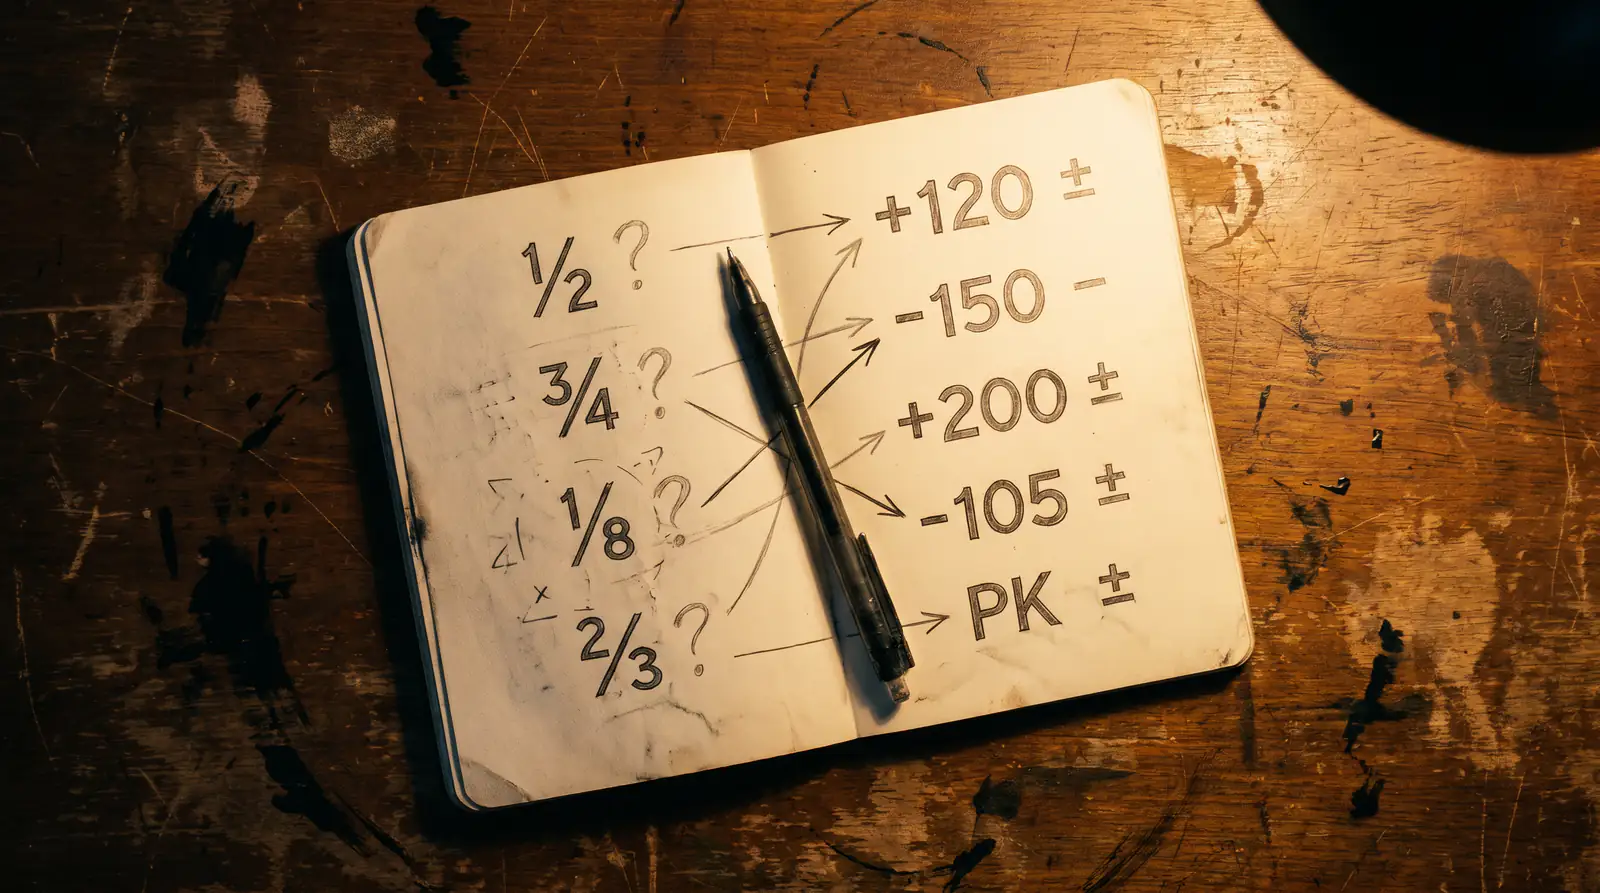 1/2 ?
3/4 ?
1/8 ?
2/3 ?
+120 ±
-150 -
+200 ±
-105 ±
PK ±